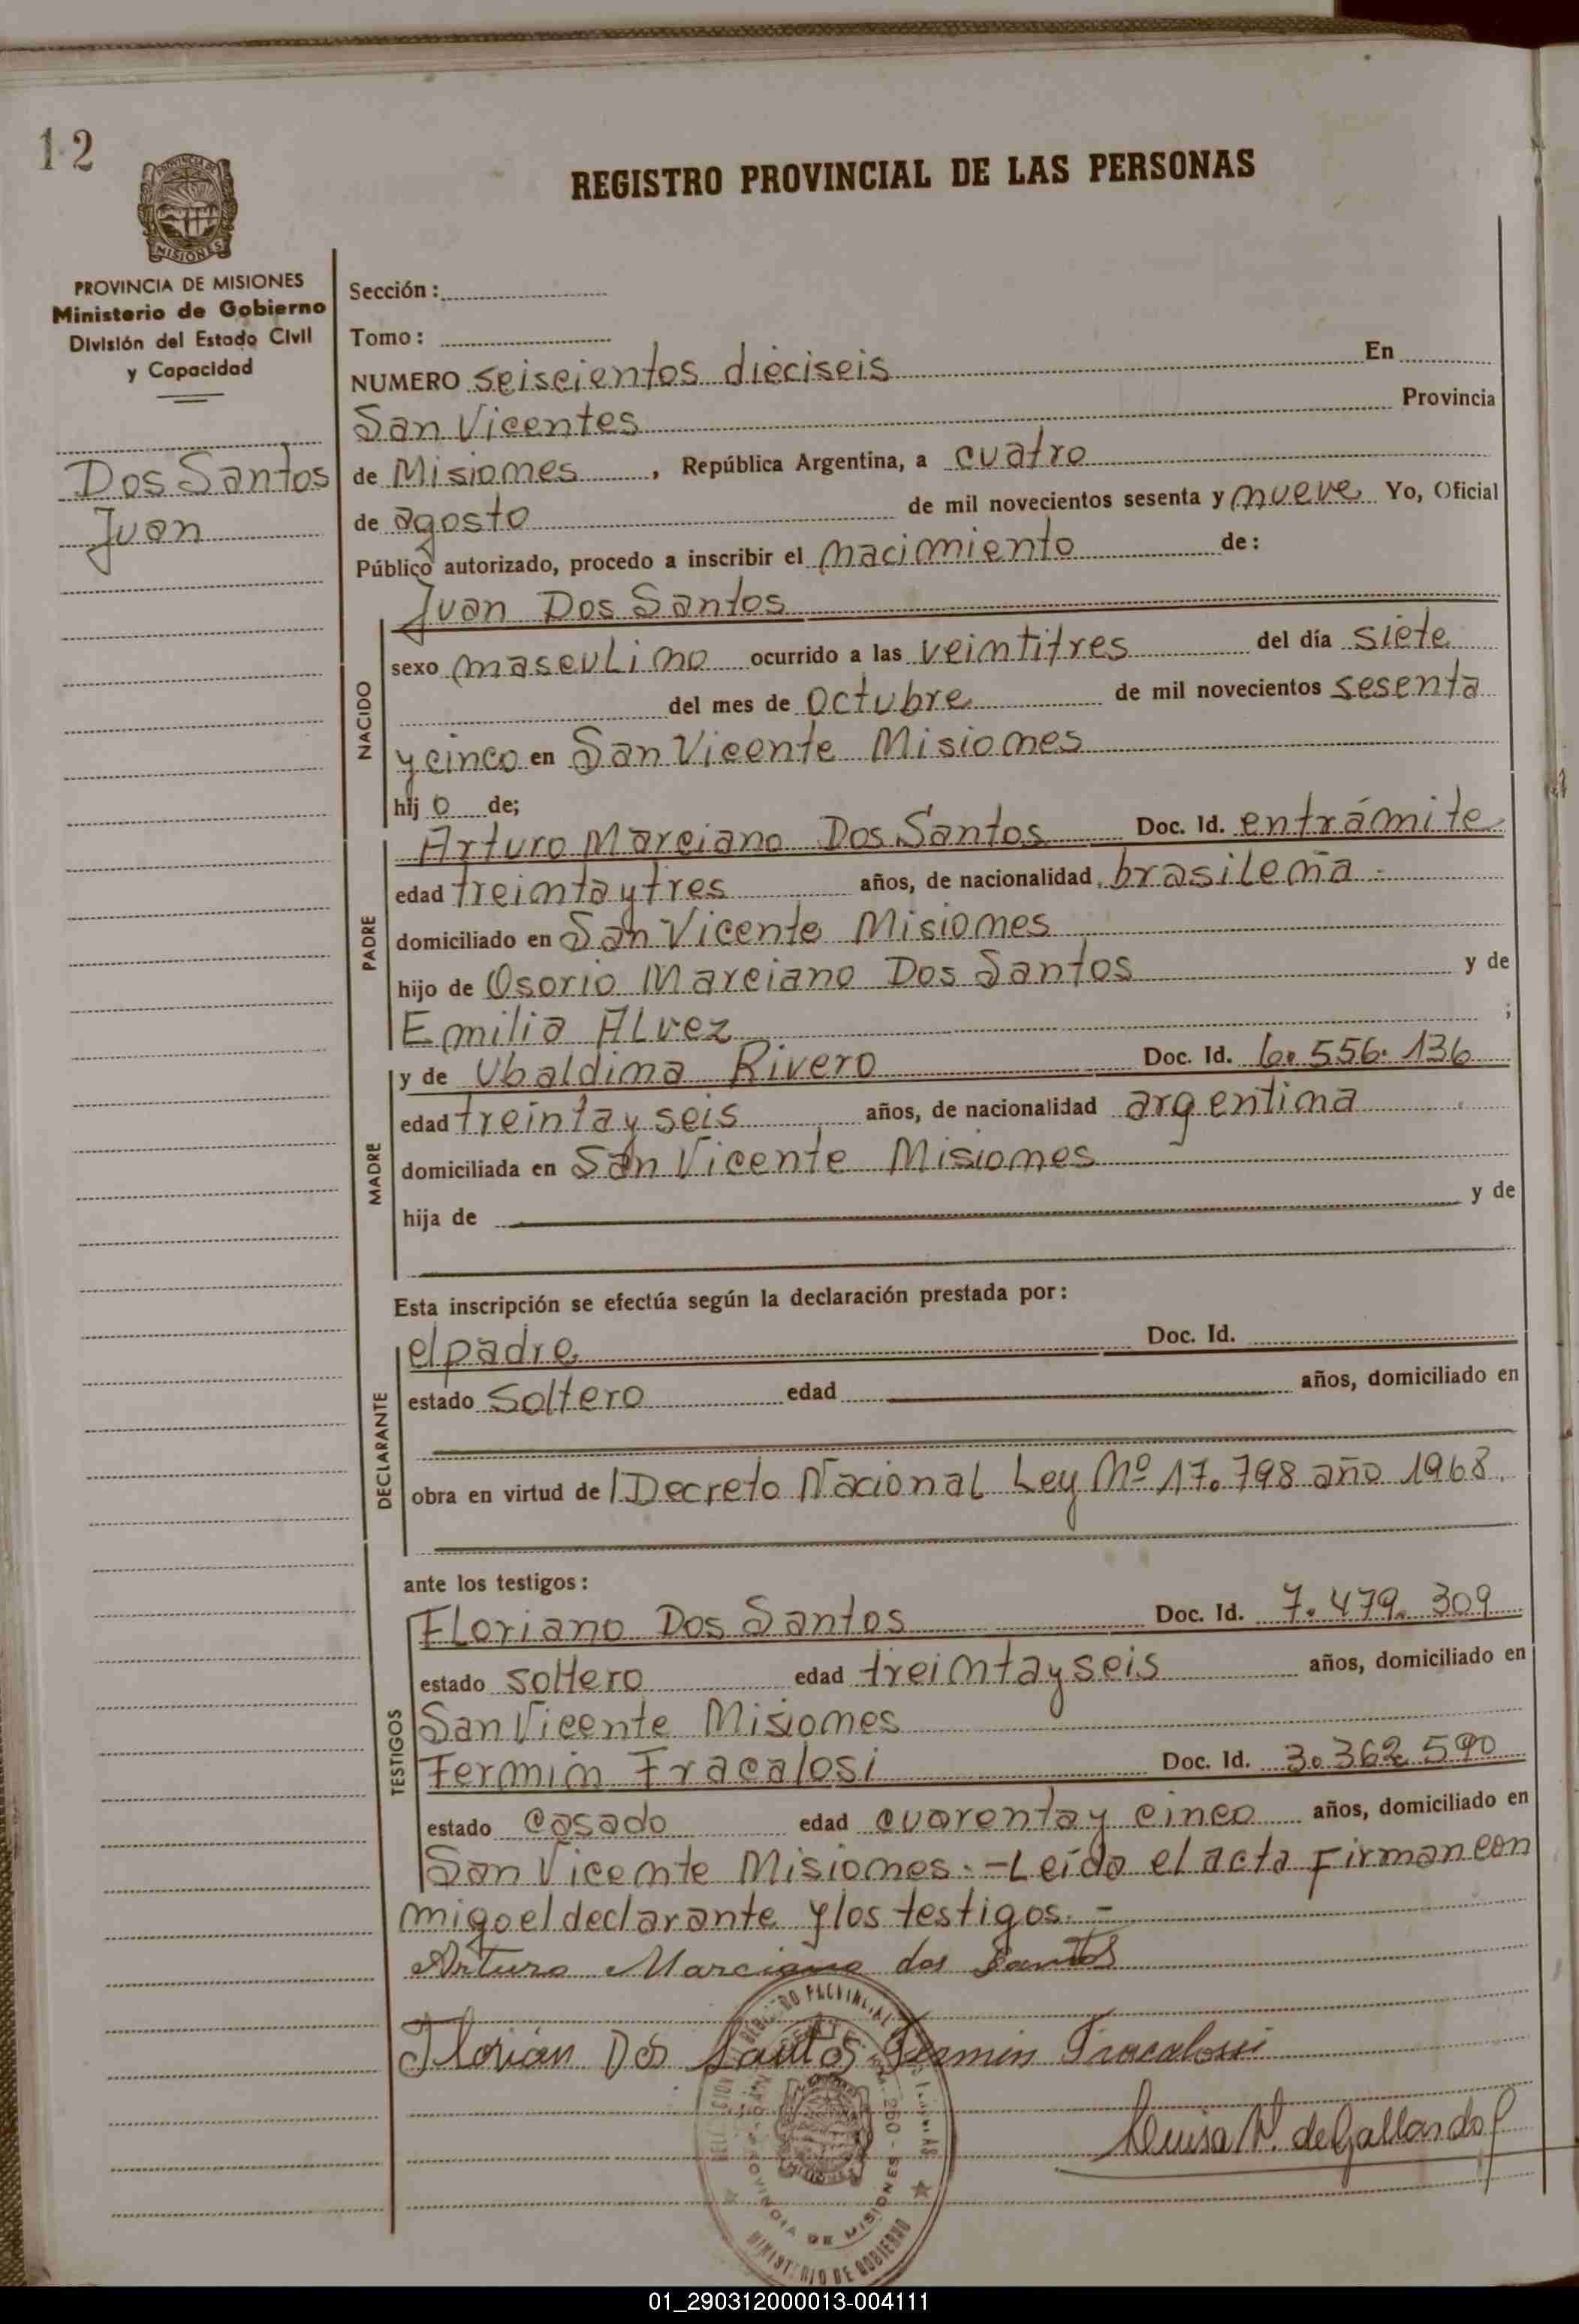 12
REGISTRO PROVINCIAL DE LAS PERSONAS
MISIONES
PROVINCIA DE MISIONES
Ministerio de Gobierno
División del Estado Civil
y Capacidad
Dos Santos
Juan
Sección:
Tomo:
NUMERO seiscientos dieciseis En
San Vicentes Provincia
de Misiones, República Argentina, a cuatro
de agosto de mil novecientos sesenta y nueve Yo, Oficial
Público autorizado, procedo a inscribir el nacimiento de:
NACIDO
Juan Dos Santos
sexo masculino ocurrido a las veintitres del día siete
del mes de Octubre de mil novecientos sesenta
y cinco en San Vicente Misiones
hij o de;
PADRE
Arturo Marciano Dos Santos Doc. Id. entrámite
edad treinta y tres años, de nacionalidad brasileña -
domiciliado en San Vicente Misiones
hijo de Osorio Marciano Dos Santos y de
Emilia Alvez ;
MADRE
y de Ubaldina Rivero Doc. Id. 6.556.136
edad treinta y seis años, de nacionalidad argentina
domiciliada en San Vicente Misiones
hija de y de
Esta inscripción se efectúa según la declaración prestada por:
DECLARANTE
el padre Doc. Id.
estado soltero edad años, domiciliado en
obra en virtud de l Decreto Nacional Ley Nº 17.798 año 1968.
ante los testigos:
TESTIGOS
Floriano Dos Santos Doc. Id. 7.479.309
estado soltero edad treinta y seis años, domiciliado en
San Vicente Misiones
Fermin Fracalosi Doc. Id. 3.362.590
estado casado edad cuarenta y cinco años, domiciliado en
San Vicente Misiones.-Leída el acta Firman con
migo el declarante y los testigos.-
Arturo Marciano dos Santos
Florián Dos Santos Fermin Fracalossi
Luisa N. de Gallardo
PROVINCIA DE MISIONES
MINISTERIO DE GOBIERNO
01_290312000013-004111